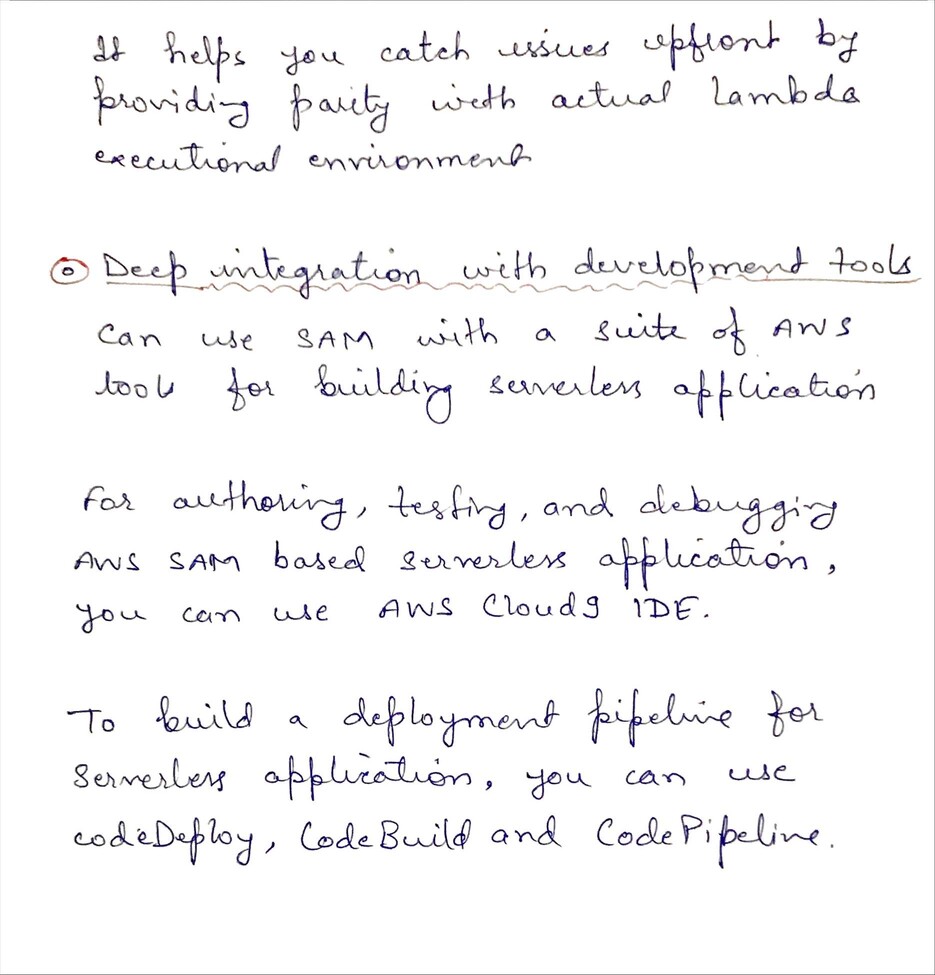 It helps you catch issues upfront by
providing parity with actual Lambda
executional environment
Deep integration with development tools
Can use SAM with a suite of AWS
tools for building serverless application
For authoring, testing, and debugging
AWS SAM based serverless application,
you can use AWS Cloud9 IDE.
To build a deployment pipeline for
Serverless application, you can use
codeDeploy, CodeBuild and CodePipeline.